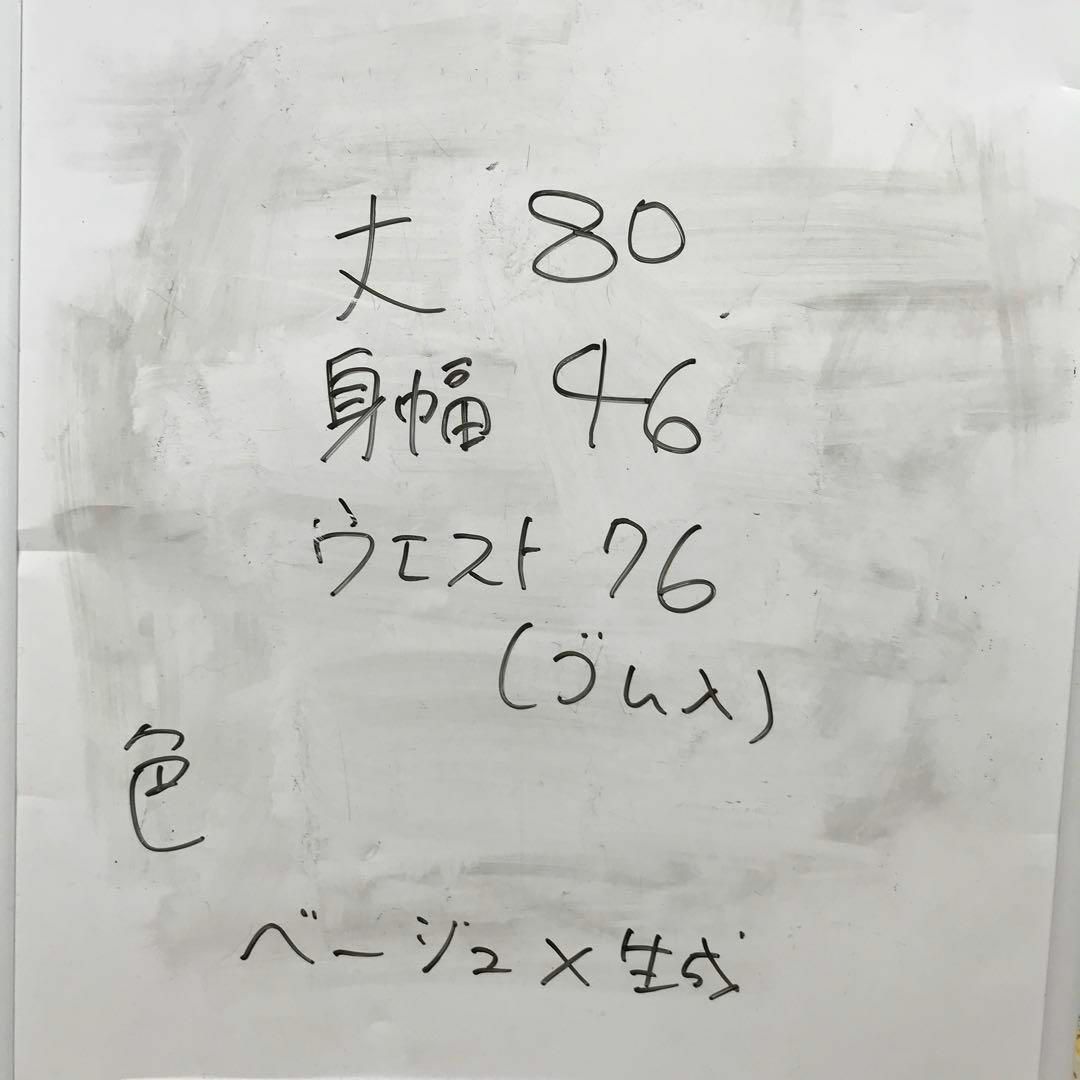 丈 80
身幅 46
ウエスト 76
(ゴム入)
色
ベージュ×生成